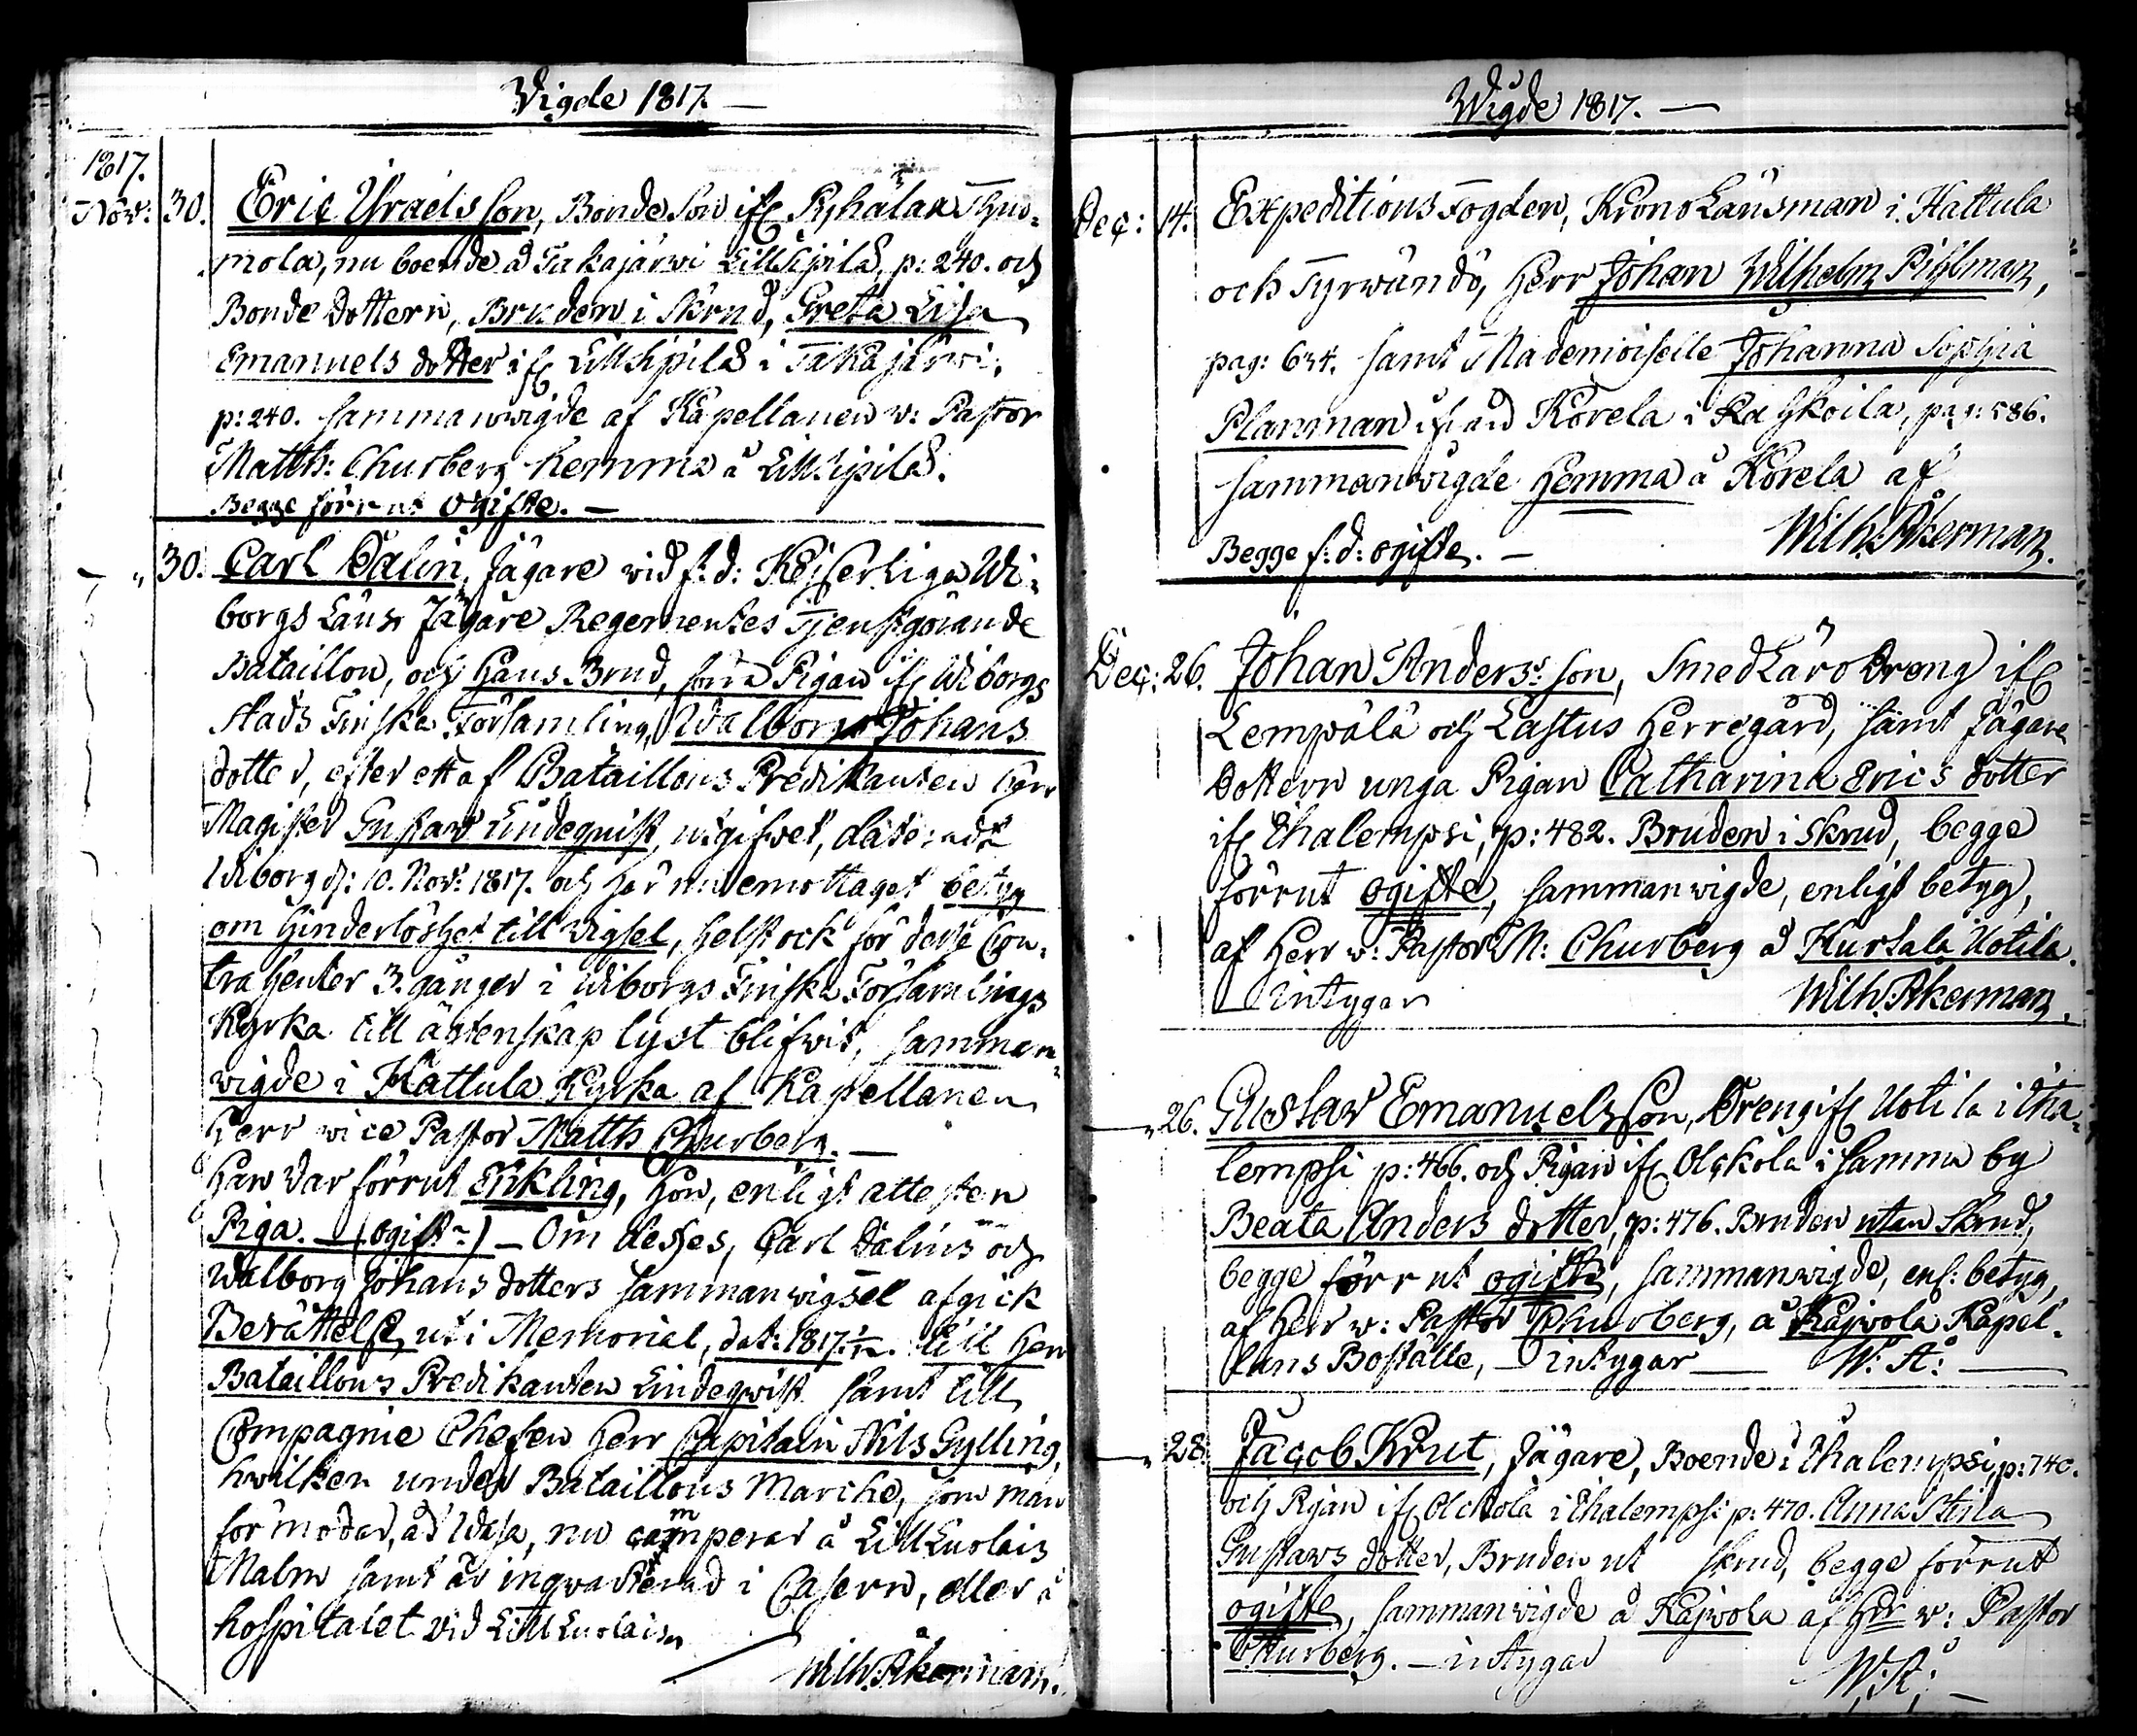 Vigde 1817. —
1817.
Nov: 30. Eric Israels son, Bonde Son ifr Pyhälax Thuo-
mola, nu boende å Takajärvi Lill Sipilä, p: 240. och
Bonde Dottern, Bruden i Skrud, Greta Lisa
Emanuels dotter ifr Lill Sipilä i Takajärwi,
p: 240. sammanwigde af Kapellanen v: Pastor
Matth: Churberg hemma å Lill Sipilä.
Begge förrut ogifte. —
" 30. Carl Dalin, Jägare wid f: d: Kejserliga Wi-
borgs Läns Jägare Regementes Tjenstgörande
Bataillon, och Hans Brud, förra Pigan ifr Wiborgs
stads Finska Församling, Walborg Johans
dotter, efter ett af Bataillons Predikanten Herr
Magister Gustaw Lindequist, utgifwet, dateradt
Wiborg d: 10. Nov: 1817. och här nu emottaget betyg
om Hinderlöshet till wigsel, helst ock för desse Con-
trahenter 3. gånger i Wiborgs Finska Församlings
Kyrka till äktenskap lyst blifwit, samman-
wigde i Hattula Kyrka af Kapellanen
Herr vice Pastor Matth Churberg. —
Han var förrut Enkling, Hon, enligt attesten
Piga. — (ogift) — Om desses, Carl Dalins och
Walborg Johans dotters sammanwigsel afgick
Berättelse, uti Memorial, dat: 1817 1/12. till Herr
Bataillons Predikanten Lindeqwist samt till
Compagnie Chefen Herr Capitain Nils Gylling,
hwilken under Bataillons Marche, som man
förmodar, åt Wasa, nu camperar å Lill Luolais
Malm samt är inqwarterad i Casern, eller å
hospitalet vid Lill Luolais
Wilh: Åkerman.
Wigde 1817. —
Dec: 14. Expeditions Fogden, Krono Länsman i Hattula
och Tyrwändö, Herr Johan Wilhelm Pihlman,
pag: 634. samt Mademoiselle Johanna Sophia
Planman ifrån Korela i Raskoila, pag: 586.
sammanwigde Hemma å Korela af
Begge f: d: ogifte. — Wilh: Åkerman.
Dec: 26. Johan Anders son, Smed Läro Dreng ifr
Lempälä och Lastus Herregård, samt Jägare
Dottern unga Pigan Catharina Erics dotter
ifr Ihalempsi, p: 482. Bruden i Skrud, begge
förrut ogifte, sammanwigde, enligt betyg,
af Herr v: Pastor M: Churberg å Kurtala Uotila.
— intygar Wilh. Åkerman.
" 26. Gustav Emanuels son, Dreng ifr Uotila i Iha-
lempsi p: 466. och Pigan ifr Olckola i samma by
Beata Anders dotter, p: 476. Bruden utan Skrud,
begge förrut ogifte, sammanwigde, enl: betyg,
af Herr v: Pastor Churberg, å Kajwola Kapel-
lans Boställe, — intygar — W: Å: —
" 28. Jacob Krut, Jägare, Boende i Ihalempsi, p: 740.
och Pigan ifr Olckola i Ihalempsi p: 470. Anna Stina
Gustaws dotter, Bruden ut skrud, begge förrut
ogifte, sammanwigde å Kajwola af Herr v: Pastor
Churberg. — intygar
W: Å: —